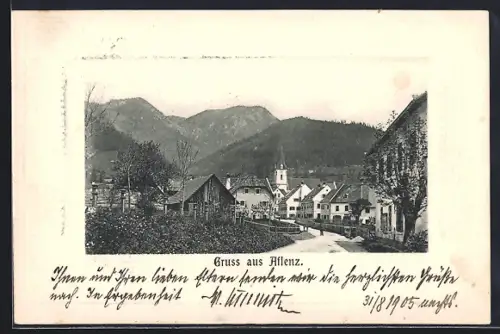 Gruss aus Aflenz.
Ihnen und Ihren lieben Eltern senden wir die herzlichsten Grüße
nach. In Ergebenheit
31/8 1905 nachts.